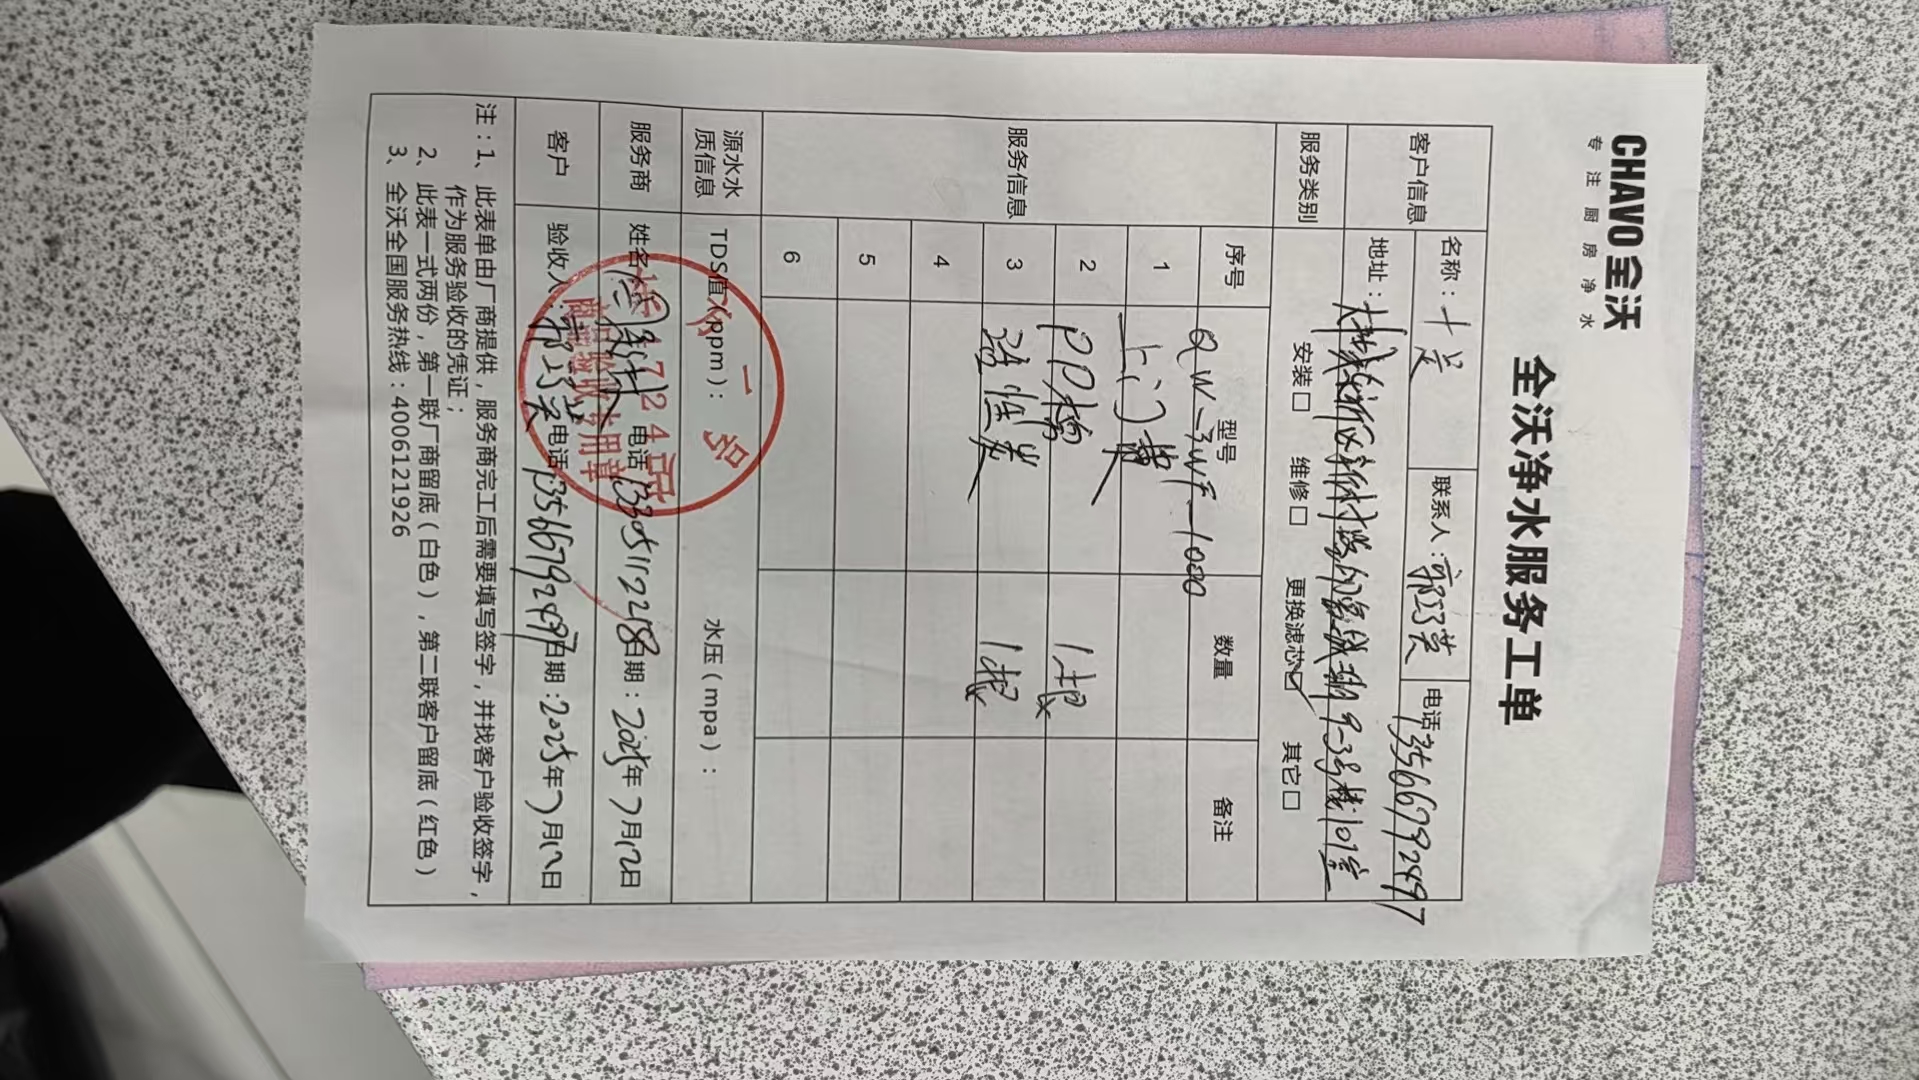 CHAVO 全沃
专注厨房净水
全沃净水服务工单
客户信息 名称：十足 联系人：郭巧英 电话：13566792497
地址： 9-33号楼101室
服务类别 安装□ 维修□ 更换滤芯☑ 其它□
服务信息 序号 型号 数量 备注
QW-3WF-1000
1 上门费
2 PP棉 1根
3 活性炭 1根
4
5
6
源水水质信息 TDS值（ppm）： 水压（mpa）：
服务商 姓名 电话 13305112218 日期：2025年7月12日
客户 验收人：郭巧英 电话：13566792497 日期：2025年7月12日
注：1、此表单由厂商提供，服务商完工后需要填写签字，并找客户验收签字，
作为服务验收的凭证；
2、此表一式两份，第一联厂商留底（白色），第二联客户留底（红色）
3、全沃全国服务热线：4006121926